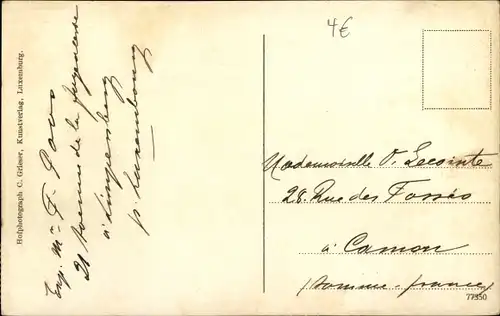 4€
Hofphotograph C. Grieser, Kunstverlag, Luxemburg.
Exp. Mr F.
21 Avenue de la
à
p. Luxembourg
Mademoiselle V. Lecointe
28 Rue des Fossés
à Camon
(Somme - france)
77350